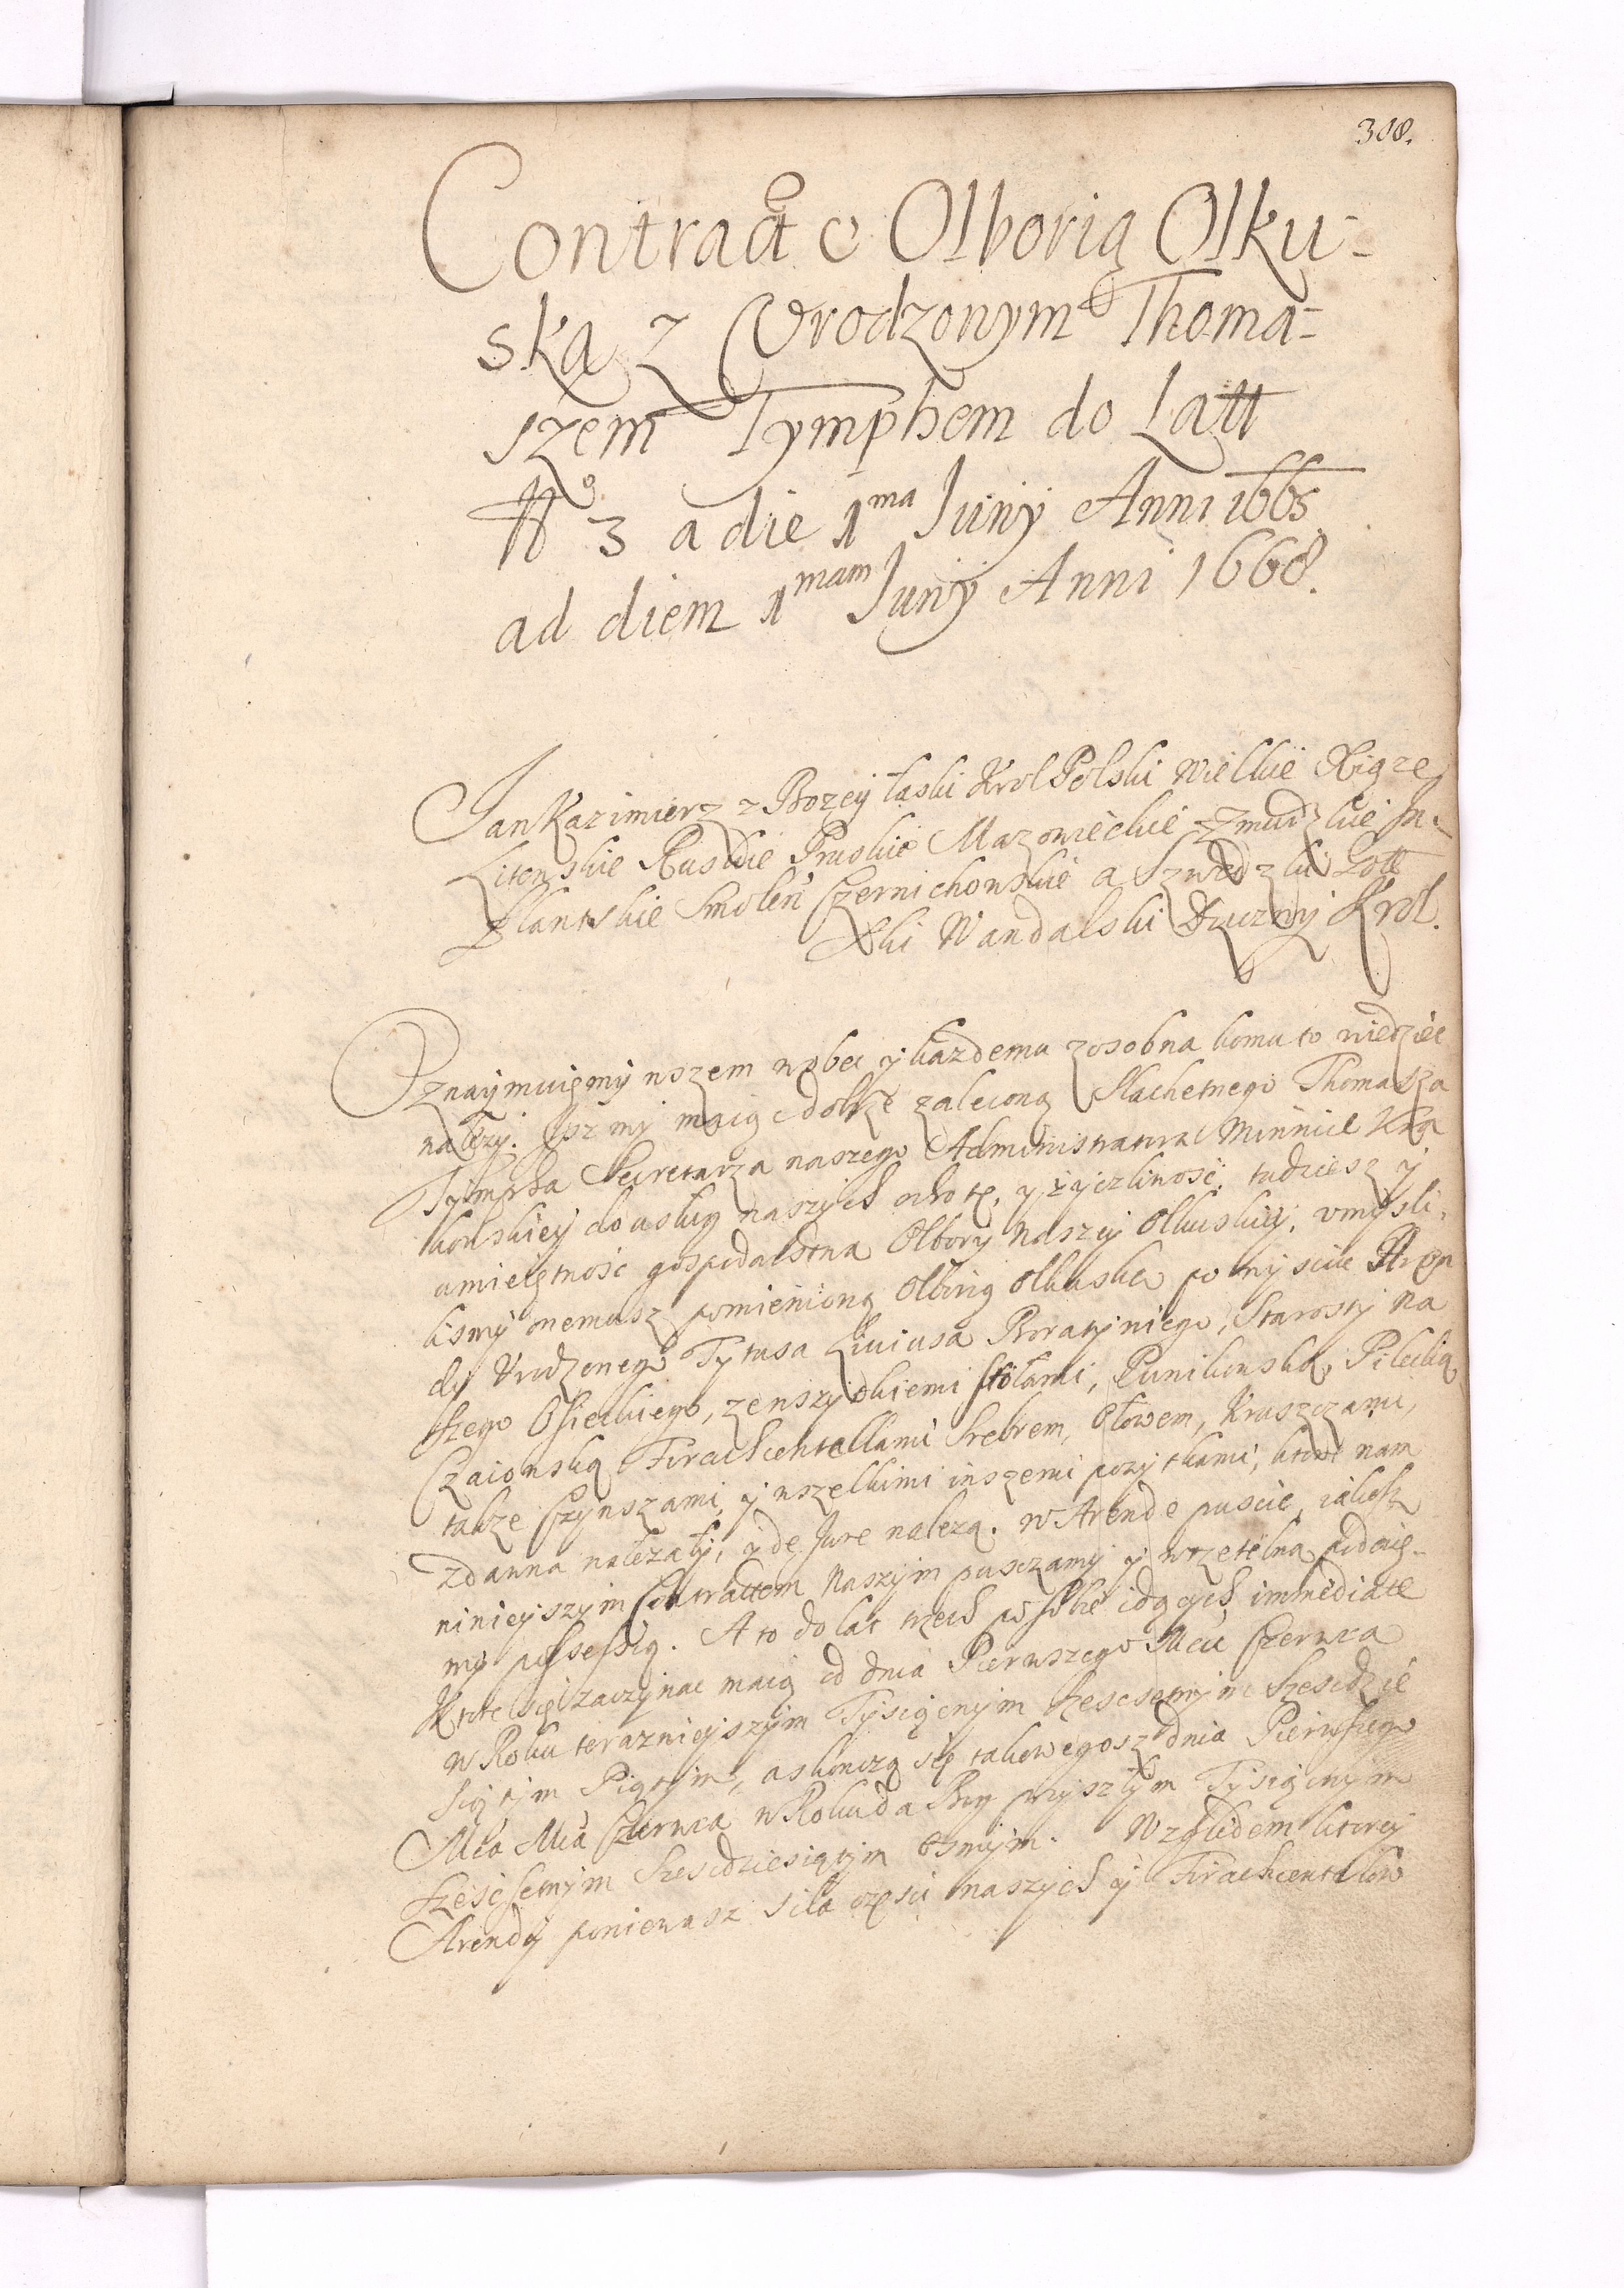 308.
Contract o Olborią Olku-
ską z Vrodzonym Thoma-
szem Tymphem do Latt
No 3 a die 1ma Juny Anni 1665
ad diem 1mam Juny Anni 1668.
Jan Kazimierz z Bozey łaski Krol Polski Wielkie Xiąze
Litewskie Ruskie Pruskie Mazowieckie Zmudzkie In-
flantskie Smolen Czernichowskie a Szwedzki Gott
ski Wandalski Dziedziczny Krol.
Oznaymuięmy wszem wobec y kazdemu zosobna komu to wiedziec
nalezy. Isz my maiąc dobrze zaleconą Slachetnego Thomasza
Tympha Secretarza naszego Administratora Minnice Kra
kowskiey do usług naszych ochotę, y życzliwość, tudziesz y
umieiętność gospodarstwa Olbory Naszey Olkuskiey, vmysli-
lismy onemusz pomienioną Olborią Olkuską po wysciu Aren
dy Vrodzonego Tytusa Liuiusa Boratyniego, Starosty Na
szego Osieckiego, zewszytkiemi stołami, Punikowską, Pilecką
Czaiowską Firachcentellami Srebrem, Ołowem, Kruszczami,
takze Czynszami, y wszelkimi inszemi pozytkami, ktore nam
zdawna nalezały, y de Jure nalezą. w Arende puscic, iakosz
ninieyszym Contractem Naszym pusczamy y wrzetelną podaie-
my possessią. A to do lat trzech po sobie idących immediate
Ktore się zaczynac maią od dnia Pierwszego Mca Czerwca
w Roku terazniejszym Tysiącnym Szescsetnym Szescdzie
siątym Piątym, a skonczą się takowegosz dnia Pierwszego
Mca Mca Czerwca w Roku da Bog przyszłym Tysiącnym
Szescsetnym Szescdziesiątym Osmym. Względem ktorey
Arendy poniewasz siła częsci naszych y Firachcentelow